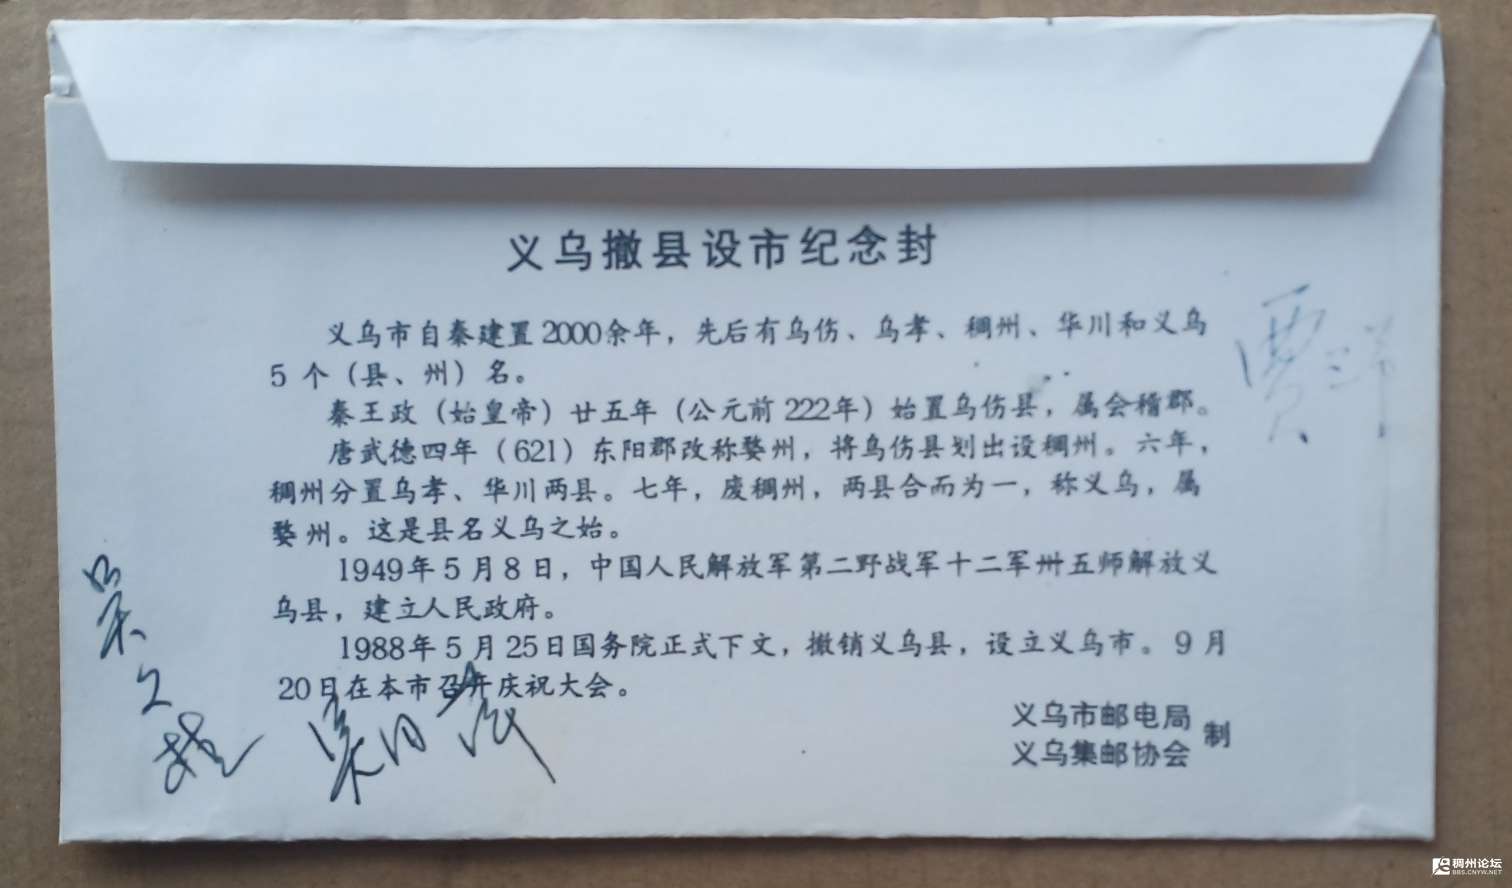 义乌撤县设市纪念封
义乌市自秦建置2000余年，先后有乌伤、乌孝、稠州、华川和义乌
5个（县、州）名。
秦王政（始皇帝）廿五年（公元前222年）始置乌伤县，属会稽郡。
唐武德四年（621）东阳郡改称婺州，将乌伤县划出设稠州。六年，
稠州分置乌孝、华川两县。七年，废稠州，两县合而为一，称义乌，属
婺州。这是县名义乌之始。
1949年5月8日，中国人民解放军第二野战军十二军卅五师解放义
乌县，建立人民政府。
1988年5月25日国务院正式下文，撤销义乌县，设立义乌市。9月
20日在本市召开庆祝大会。
义乌市邮电局
义乌集邮协会
制
稠州论坛
BBS.CNYW.NET